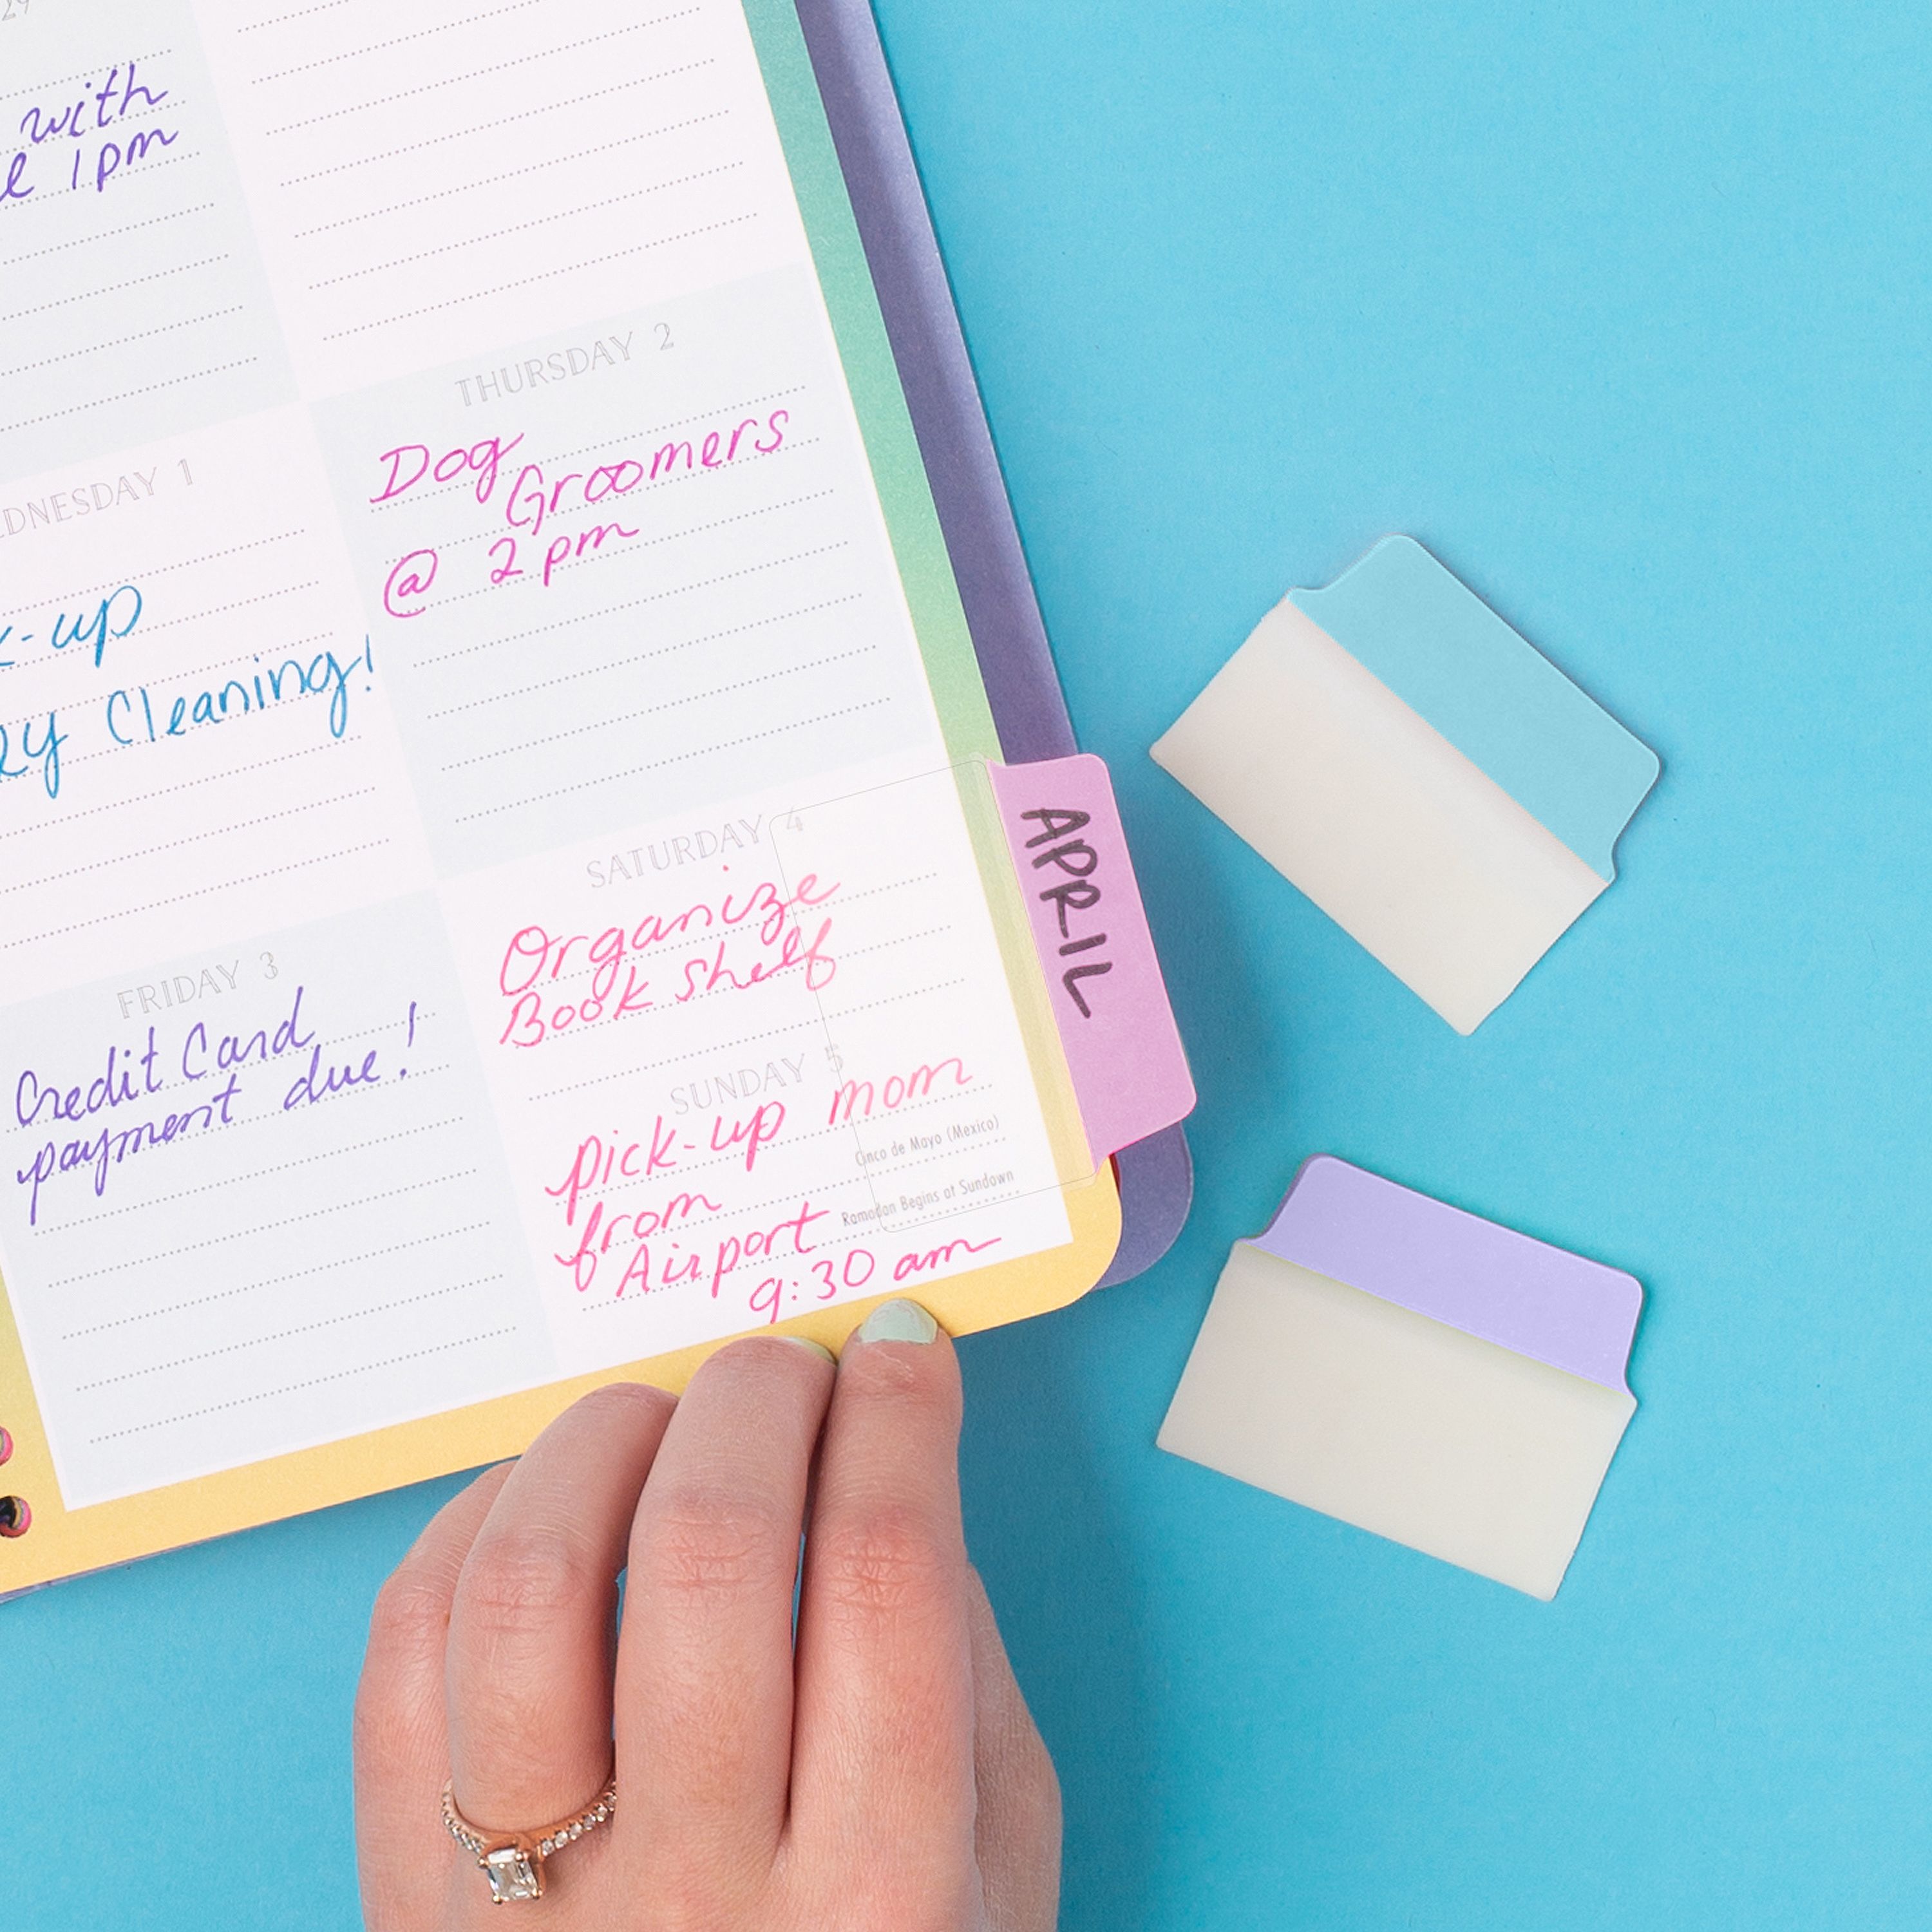 29
with
1pm
THURSDAY 2
Dog
Groomers
@ 2pm
WEDNESDAY 1
-up
Cleaning!
SATURDAY 4
Organize
Book shelf
FRIDAY 3
Credit Card
payment due!
SUNDAY 5
pick-up mom
from
Airport
9:30 am
Cinco de Mayo (Mexico)
Ramadan Begins at Sundown
APRIL